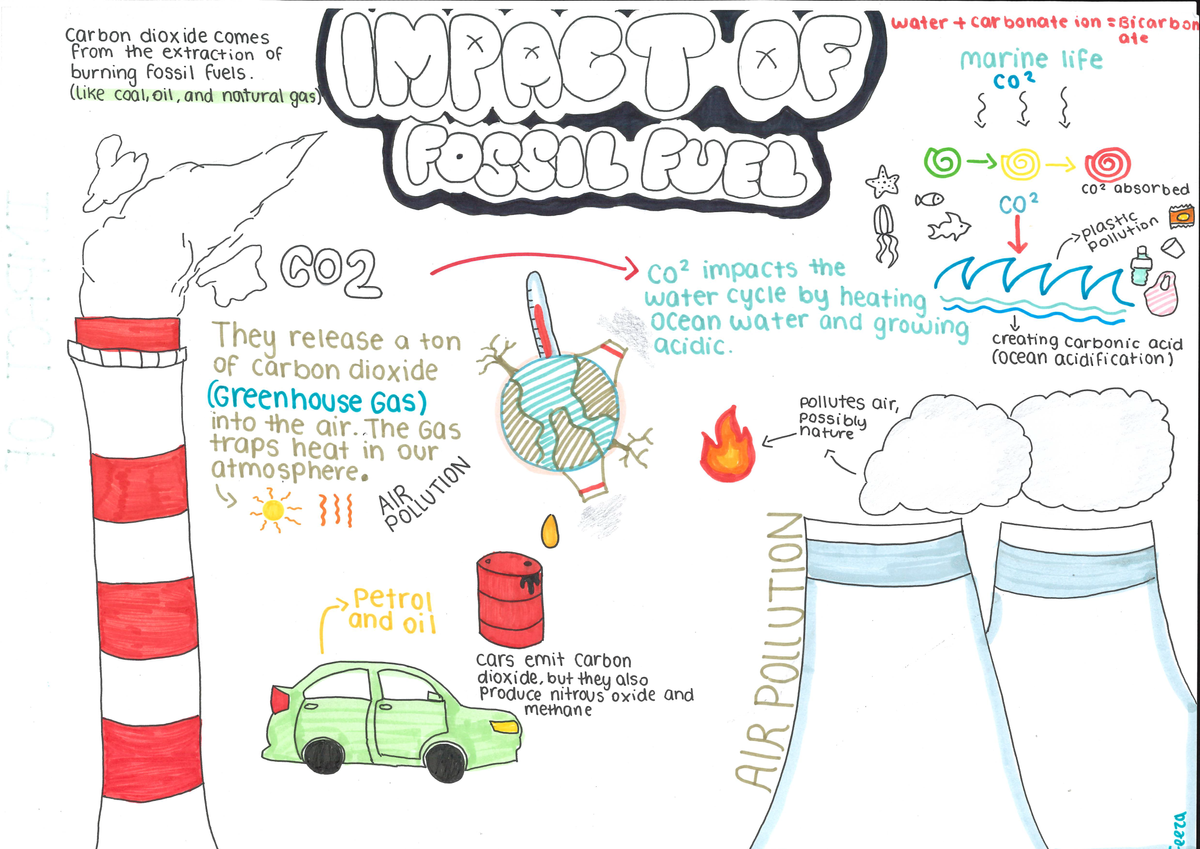 IMPACT OF
FOSSIL FUEL
Carbon dioxide comes
from the extraction of
burning fossil fuels.
(like coal, oil, and natural gas)
water + carbonate ion = Bicarbon
ate
marine life
CO²
CO² absorbed
CO²
plastic
pollution
creating carbonic acid
(ocean acidification)
CO2
CO² impacts the
water cycle by heating
ocean water and growing
acidic.
They release a ton
of carbon dioxide
(Greenhouse Gas)
into the air. The Gas
traps heat in our
atmosphere.
AIR
POLLUTION
pollutes air,
possibly
nature
Petrol
and oil
cars emit carbon
dioxide, but they also
produce nitrous oxide and
methane
AIR POLLUTION